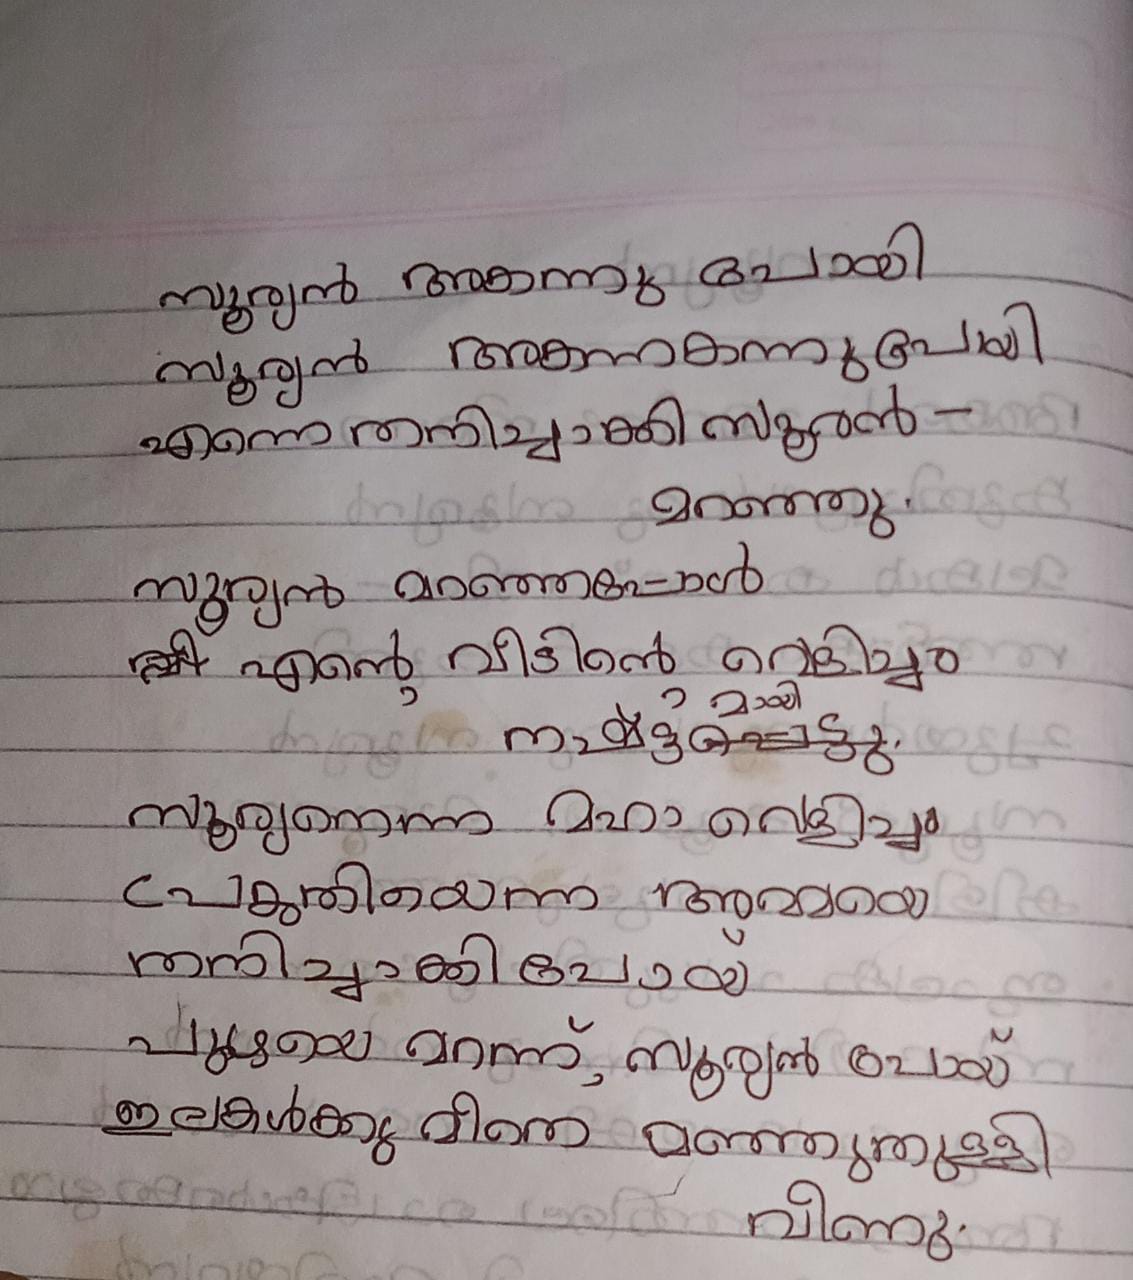 സൂര്യൻ അകന്നു പോയി
സൂര്യൻ അകന്നകന്നുപോയി
എന്നെ തനിച്ചാക്കി സൂര്യൻ -
മറഞ്ഞു.
സൂര്യൻ മറഞ്ഞപ്പോൾ
എന്റെ വീടിന്റെ വെളിച്ചം
നഷ്ടമായി
സൂര്യനെന്ന മഹാ വെളിച്ചം
പ്രകൃതിയെന്ന അമ്മയെ
തനിച്ചാക്കി പോയ്
പുഴയെ മറന്ന്, സൂര്യൻ പോയ്
ഇലകൾക്കു മീതെ മഞ്ഞുതുള്ളി
വീണു.